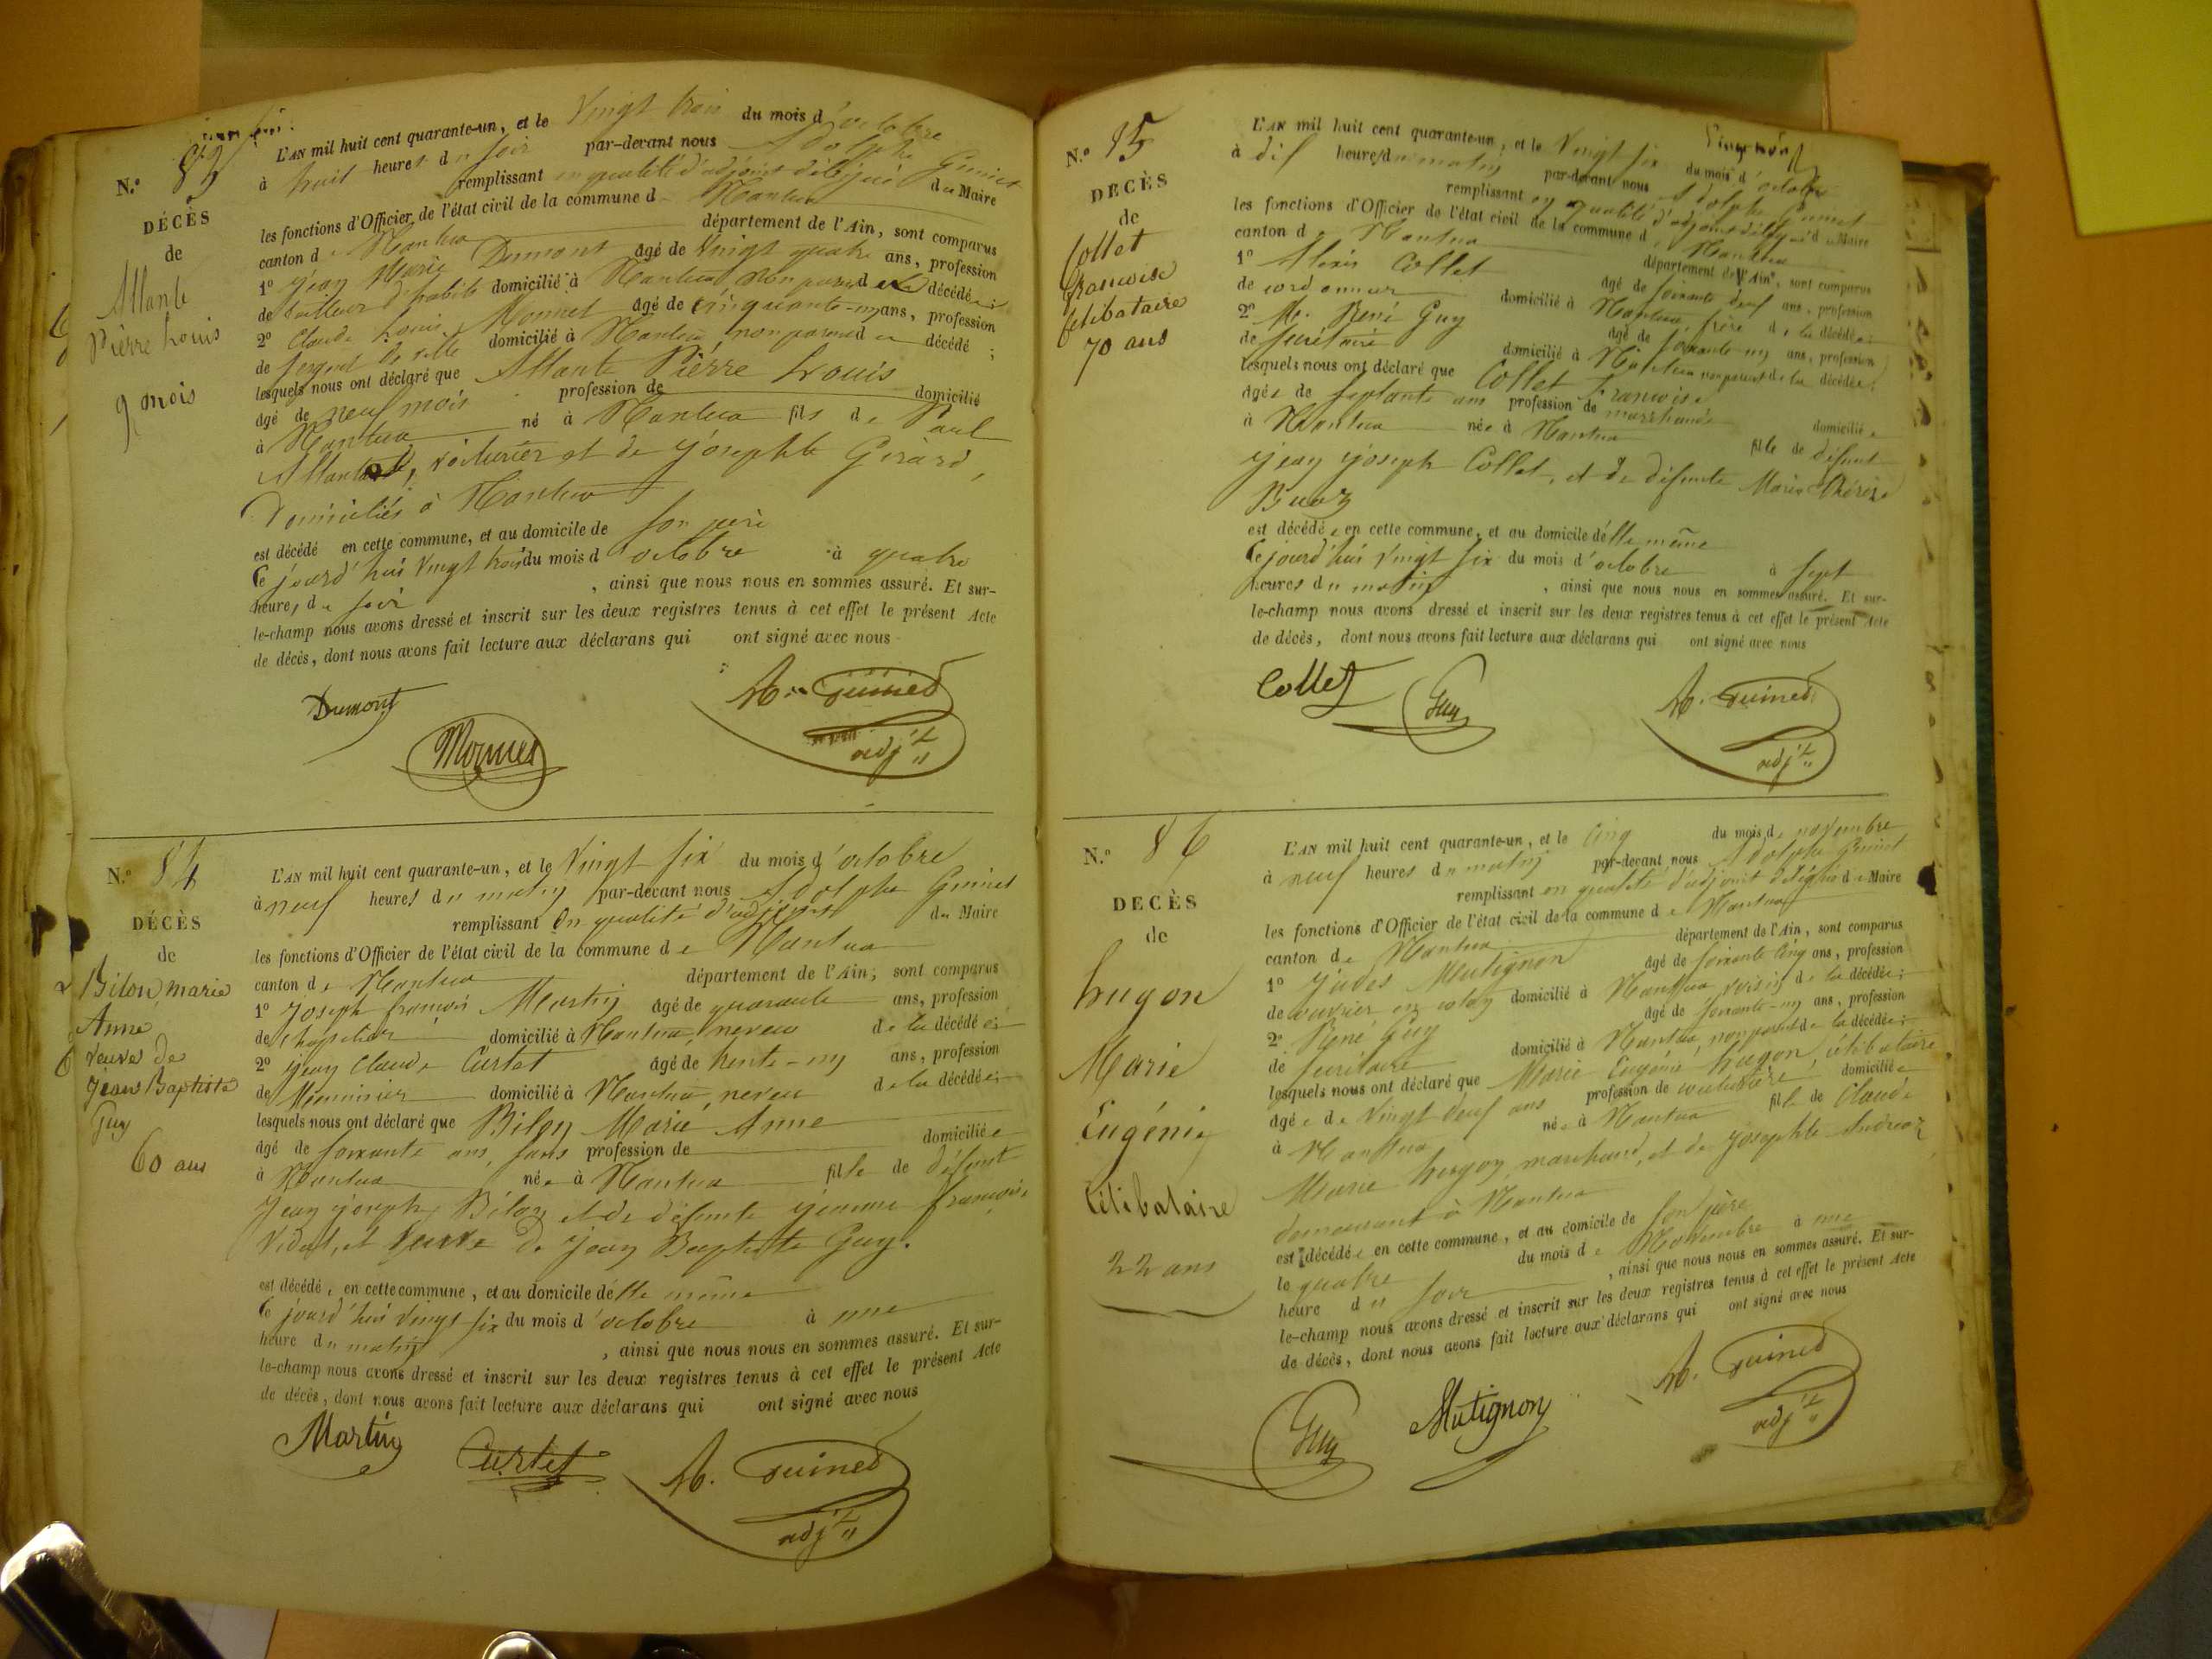 N.° 83
DÉCÈS
de
Allante
Pierre Louis
9 mois
L'AN mil huit cent quarante-un, et le Vingt trois du mois d'octobre
à huit heures du soir par-devant nous Adolphe Guinet
remplissant en qualité d'adjoint délégué du Maire
les fonctions d'Officier de l'état civil de la commune de Nantua
canton de Nantua département de l'Ain, sont comparus
1° Jean Marie Dumont âgé de Vingt quatre ans, profession
de tailleur d'habits domicilié à Nantua non parent du décédé;
2° Claude Louis Monnet âgé de cinquante-un ans, profession
de sergent de ville domicilié à Nantua, non parent du décédé;
lesquels nous ont déclaré que Allante Pierre Louis
âgé de neuf mois profession de domicilié
à Nantua né à Nantua fils de Paul
Allante, voiturier et de Josephte Girard,
Domiciliés à Nantua
est décédé en cette commune, et au domicile de son père
Ce jourd'hui Vingt trois du mois d'octobre à quatre
heures du soir, ainsi que nous nous en sommes assuré. Et sur-
le-champ nous avons dressé et inscrit sur les deux registres tenus à cet effet le présent Acte
de décès, dont nous avons fait lecture aux déclarans qui ont signé avec nous
Dumont
Monnet
A. Guinet
adjt
N.° 84
DÉCÈS
de
Bilon marie
Anne
veuve de
Jean Baptiste
Guy
60 ans
L'AN mil huit cent quarante-un, et le Vingt six du mois d'octobre
à neuf heures du matin par-devant nous Adolphe Guinet
remplissant en qualité d'adjoint du Maire
les fonctions d'Officier de l'état civil de la commune de Nantua
canton de Nantua département de l'Ain, sont comparus
1° Joseph françois Martin âgé de quarante ans, profession
de chapelier domicilié à Nantua, neveu de la décédée;
2° Jean Claude Curtet âgé de trente-un ans, profession
de Menuisier domicilié à Nantua, neveu de la décédée;
lesquels nous ont déclaré que Bilon Marie Anne
âgé de soixante ans, sans profession de domiciliée
à Nantua née à Nantua fille de défunt
Jean Joseph Bilon et de défunte Jeanne françoise
Vidal, et veuve de Jean Baptiste Guy.
est décédée en cette commune, et au domicile d'elle même
Ce jourd'hui Vingt six du mois d'octobre à une
heure du matin, ainsi que nous nous en sommes assuré. Et sur-
le-champ nous avons dressé et inscrit sur les deux registres tenus à cet effet le présent Acte
de décès, dont nous avons fait lecture aux déclarans qui ont signé avec nous
Martin
Curtet
A. Guinet
adjt
N.° 85
DECÈS
de
Collet
françoise
célibataire
70 ans
L'AN mil huit cent quarante-un, et le Vingt six du mois d'octobre
à dix heures du matin par-devant nous Adolphe Guinet
remplissant en qualité d'adjoint délégué du Maire
les fonctions d'Officier de l'état civil de la commune de Nantua
canton de Nantua département de l'Ain, sont comparus
1° Alexis Collet âgé de soixante deux ans, profession
de cordonnier domicilié à Nantua frère de la décédée;
2° Mr. René Guy âgé de soixante-un ans, profession
de secrétaire domicilié à Nantua non parent de la décédée;
lesquels nous ont déclaré que Collet françoise
âgée de septante ans profession de marchande domiciliée
à Nantua née à Nantua fille de défunt
Jean Joseph Collet, et de défunte Marie Thérèse
Buoz
est décédée en cette commune, et au domicile d'elle même
Ce jourd'hui Vingt six du mois d'octobre à sept
heures du matin, ainsi que nous nous en sommes assuré. Et sur-
le-champ nous avons dressé et inscrit sur les deux registres tenus à cet effet le présent Acte
de décès, dont nous avons fait lecture aux déclarans qui ont signé avec nous
Collet
Guy
A. Guinet
adjt
N.° 86
DECÈS
de
hugon
Marie
Eugénie
Célibataire
22 ans
L'AN mil huit cent quarante-un, et le cinq du mois de novembre
à neuf heures du matin par-devant nous Adolphe Guinet
remplissant en qualité d'adjoint délégué de Maire
les fonctions d'Officier de l'état civil de la commune de Nantua
canton de Nantua département de l'Ain, sont comparus
1° Judes Mutignon âgé de soixante cinq ans, profession
de ouvrier en coton domicilié à Nantua, voisin de la décédée;
2° René Guy âgé de soixante-un ans, profession
de secrétaire domicilié à Nantua, non parent de la décédée;
lesquels nous ont déclaré que Marie Eugénie hugon, célibataire
âgée de Vingt deux ans profession de couturière domiciliée
à Nantua née à Nantua fille de Claude
Marie hugon marchand, et de Josephte Andréaz
demeurant à Nantua
est décédée en cette commune, et au domicile de son père
le quatre du mois de Novembre à une
heure du soir, ainsi que nous nous en sommes assuré. Et sur-
le-champ nous avons dressé et inscrit sur les deux registres tenus à cet effet le présent Acte
de décès, dont nous avons fait lecture aux déclarans qui ont signé avec nous
Guy
Mutignon
A. Guinet
adjt